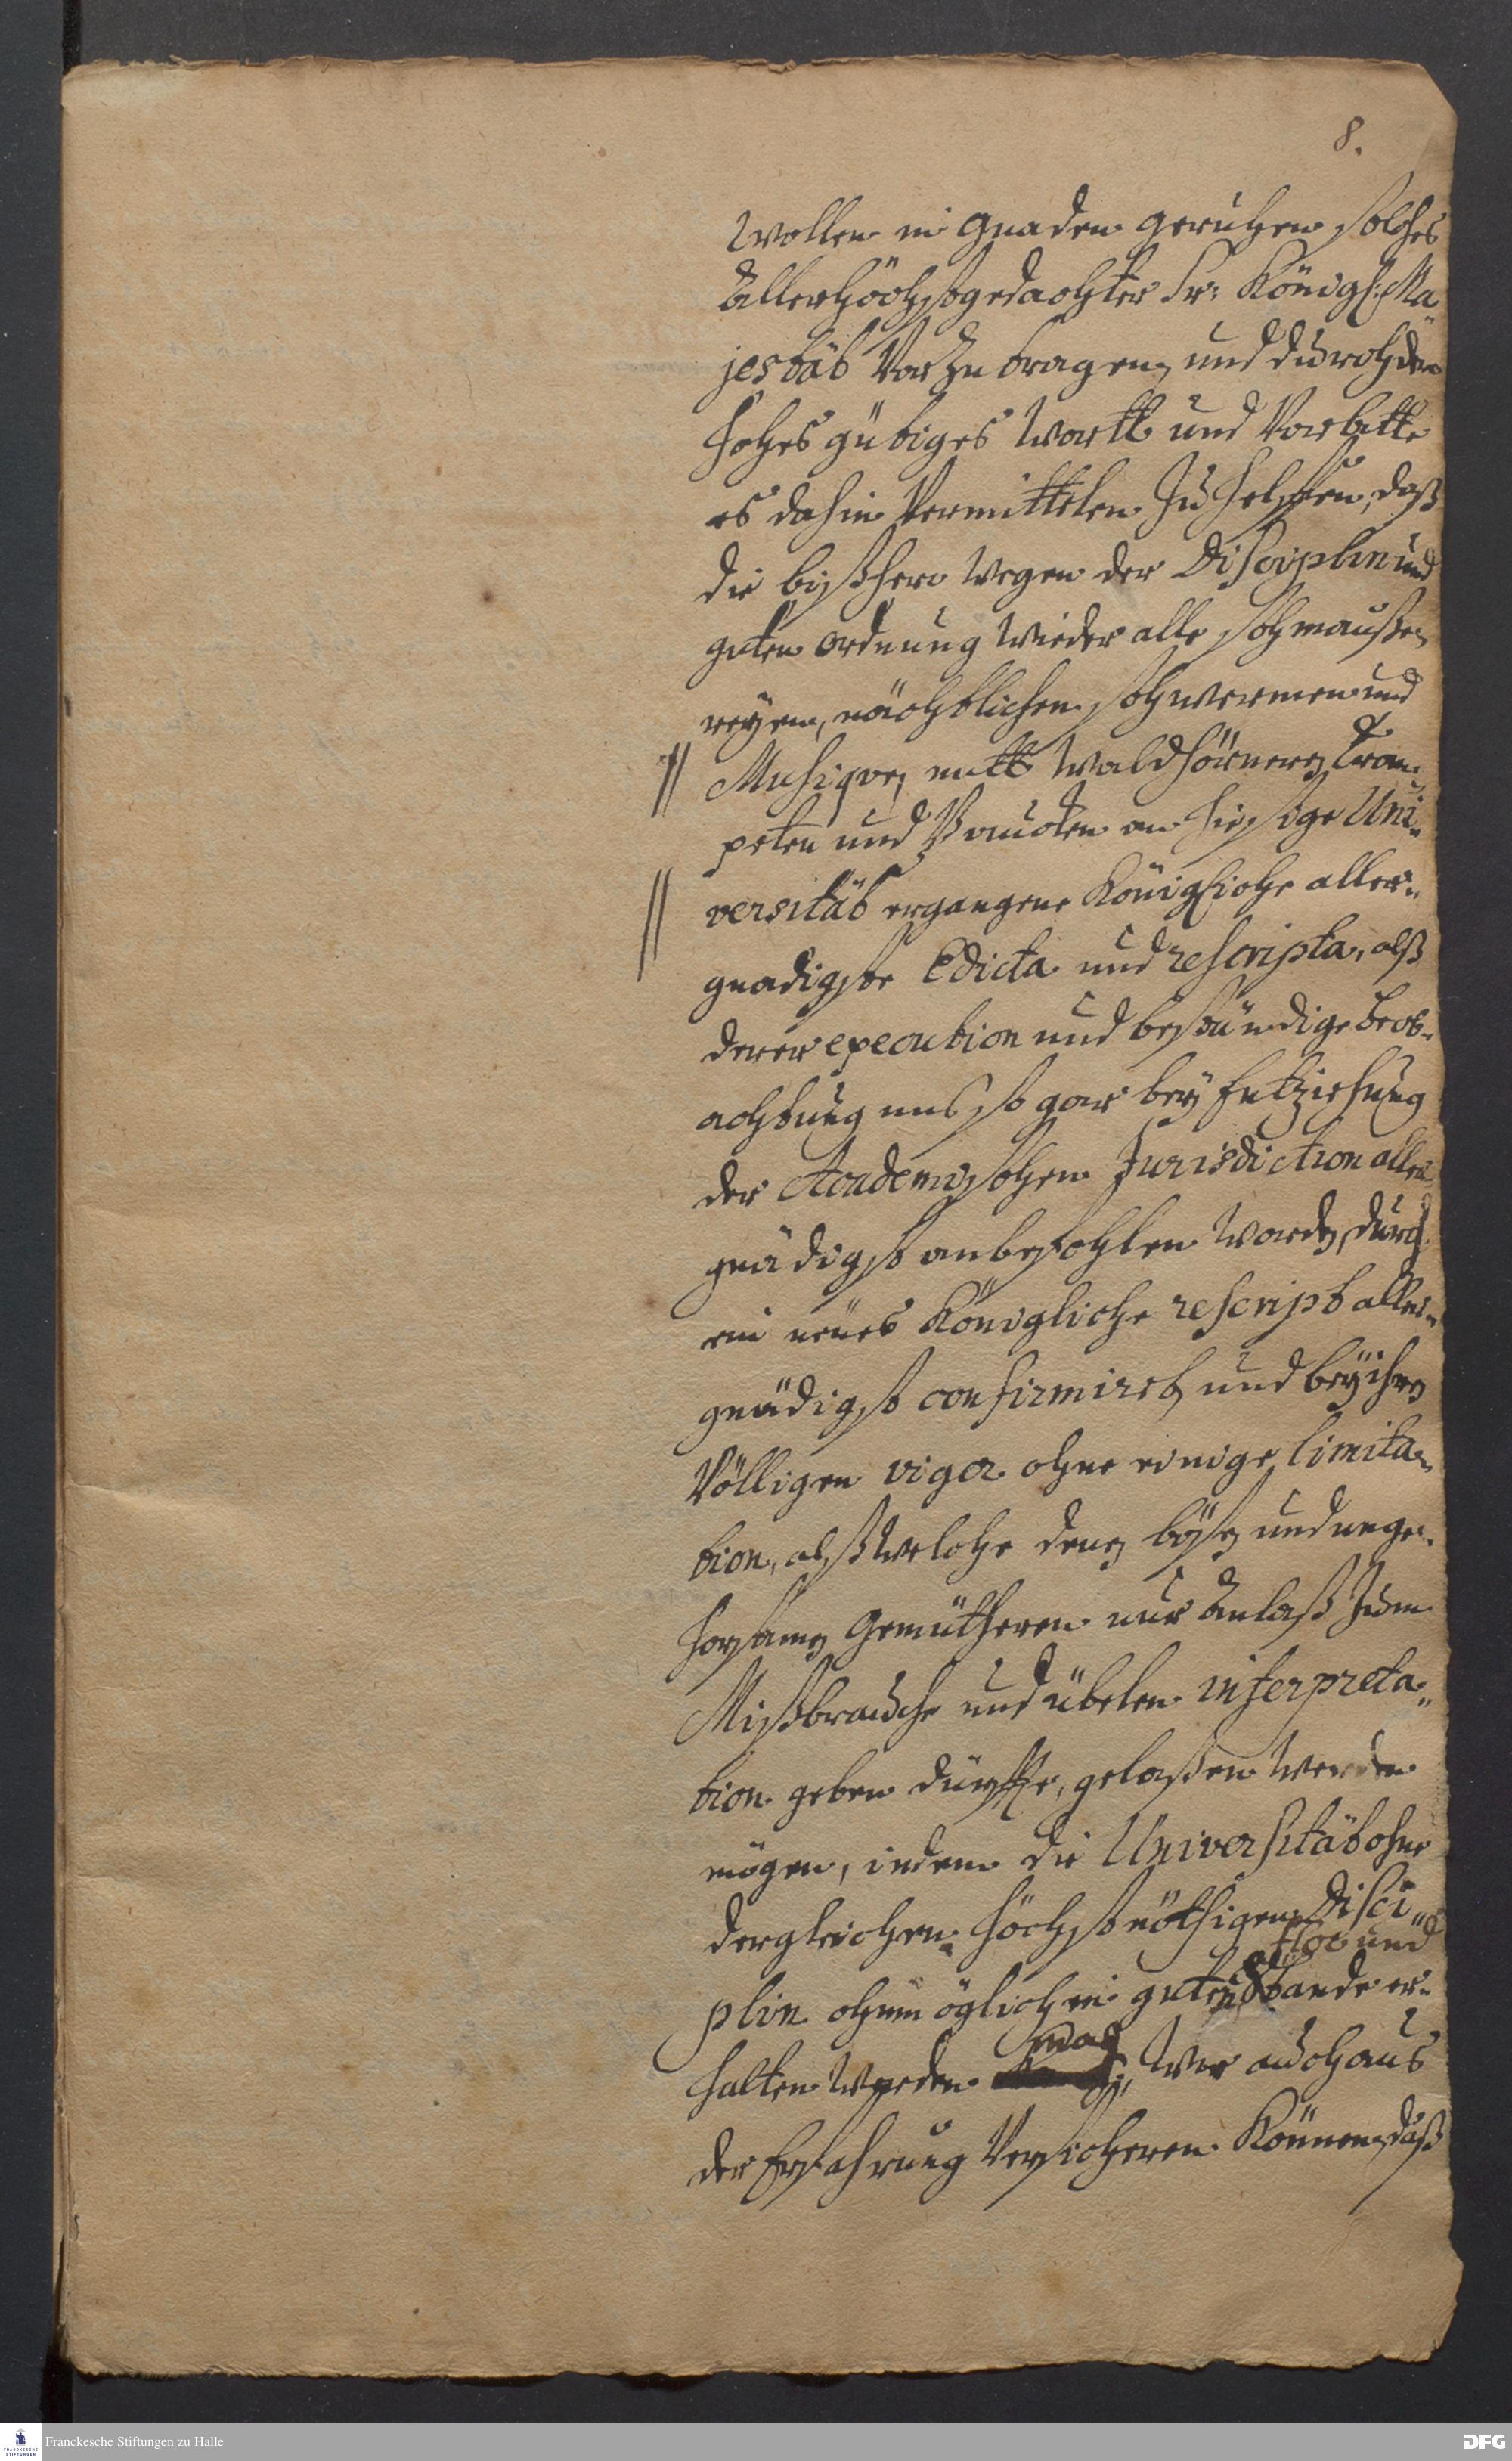 8.
wollen in Gnaden geruhen solches
Allerhöchstgedachter Sr: Königl: Ma-
jestät Vor Zu tragen, und durch dero
hohes gütiges Wortt und Vorbitte
es dahin Vermittelen Zu helffen, daß
die bißhero wegen der Disciplin und
guten ordnung wieder alle schmauße-
reyen, nächtlichen schwermen und
Musiqven mitt Waldhörnern, Trom-
peten und Paucken an hiesige Uni-
versität ergangene Königliche aller-
gnadigste Edicta und rescripta, alß
derer execution und beständige beob-
achtung uns so gar bey Entziehung
der Academischen Jurisdiction aller
gnädigst anbefohlen worden, durch
ein neües Königliche rescript aller-
gnädigst confirmiret, und bey ihren
Völligen vigor ohne einige limita-
tion, alß welche denen bösen und unge-
horsamen Gemütheren nur Anlaß Zum
Mißbrauche und übelen interpreta-
tion geben dürffte, gelaßen werden
mögen, indem die Universität ohne
dergleichen höchst nöthigen Disci-
flor und
plin ohnmöglich in guten Stande er-
mag
halten werden, Wir auch aus
der Erfahrung Versicheren Können, daß
Franckesche Stiftungen zu Halle
FRANCKESCHE
STIFTUNGEN
DFG